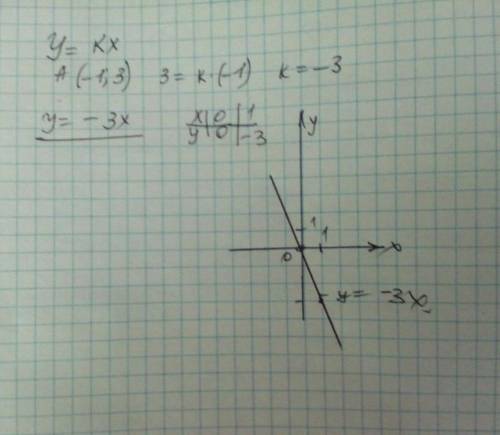 y = kx
A (-1; 3) 3 = k·(-1) k = -3
y = -3x
x | 0 | 1
y | 0 | -3
y
1
1
0
x
y = -3x